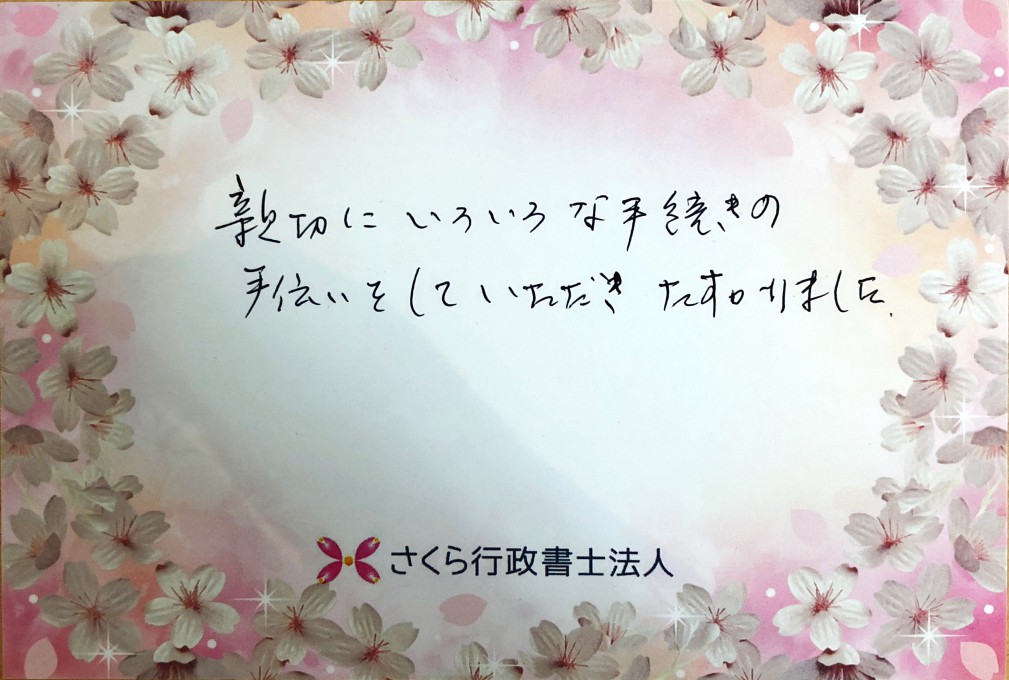 親切にいろいろな手続きの
手伝いをしていただきたすかりました.
さくら行政書士法人